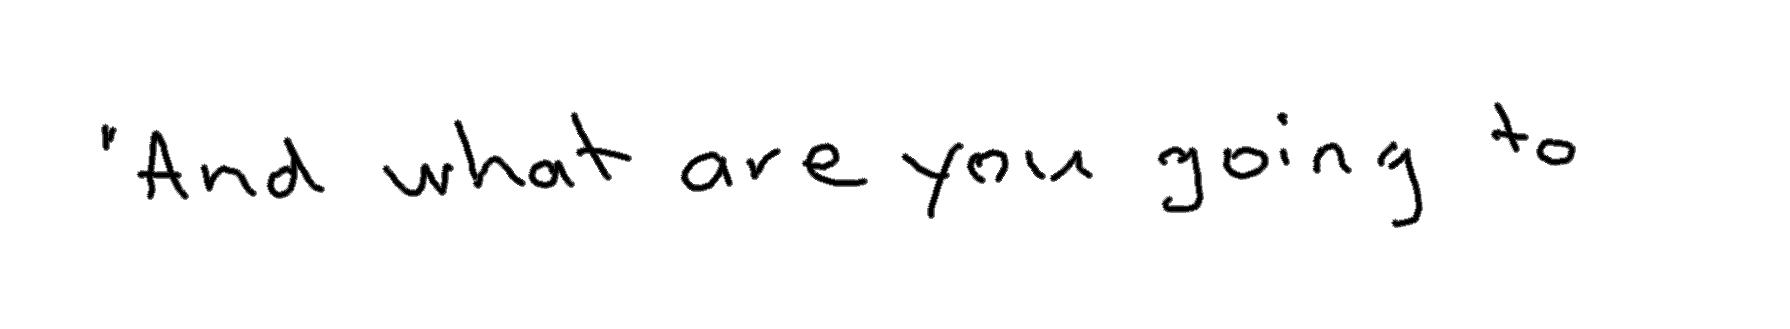 "And what are you going to